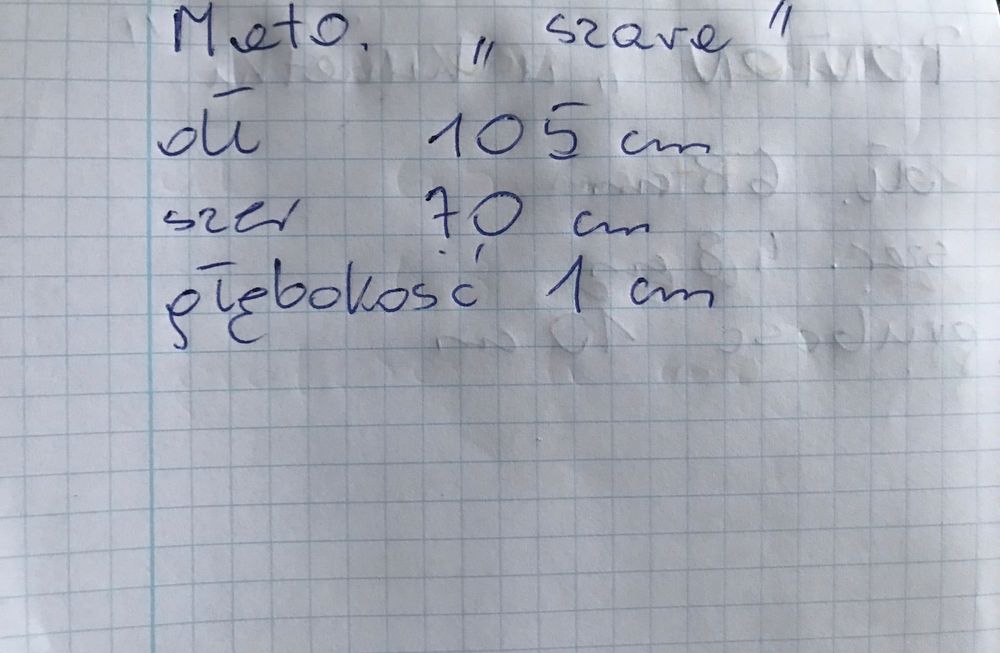 Meto. „ szare "
dł 105 cm
szer 70 cm
głębokość 1 cm